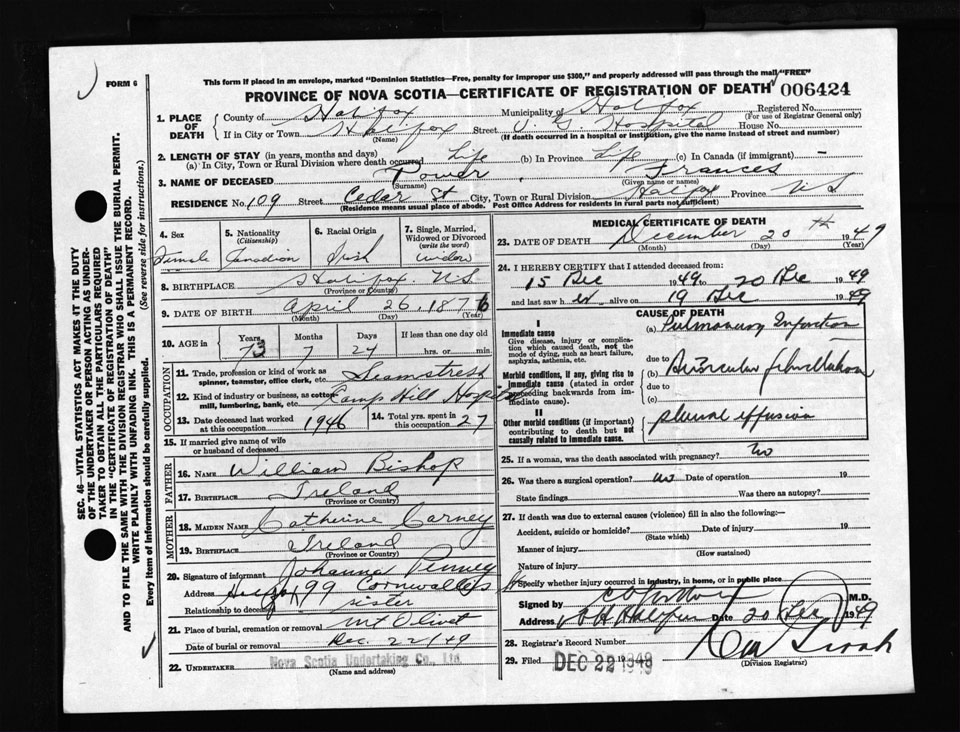 FORM 6
This form if placed in an envelope, marked "Dominion Statistics—Free, penalty for improper use $300," and properly addressed will pass through the mail "FREE"
PROVINCE OF NOVA SCOTIA—CERTIFICATE OF REGISTRATION OF DEATH 006424
1. PLACE OF DEATH County of Halifax Municipality of Halifax Registered No.
(For use of Registrar General only)
If in City or Town Halifax Street V. G. Hospital House No.
(Name) (If death occurred in a hospital or institution, give the name instead of street and number)
2. LENGTH OF STAY (in years, months and days)
(a) In City, Town or Rural Division where death occurred Life (b) In Province Life (c) In Canada (if immigrant) —
3. NAME OF DECEASED Power Frances
(Surname) (Given name or names)
RESIDENCE No. 109 Street Cedar St City, Town or Rural Division Halifax Province N S
(Residence means usual place of abode. Post Office Address for residents in rural parts not sufficient)
4. Sex Female
5. Nationality (Citizenship) Canadian
6. Racial Origin Irish
7. Single, Married, Widowed or Divorced (write the word) widow
8. BIRTHPLACE Halifax. N.S.
(Province or Country)
9. DATE OF BIRTH April 26, 1876
(Month) (Day) (Year)
10. AGE in Years 73 Months 7 Days 24 If less than one day old hrs. or min.
OCCUPATION
11. Trade, profession or kind of work as spinner, teamster, office clerk, etc. Seamstress
12. Kind of industry or business, as cotton mill, lumbering, bank, etc. Camp Hill Hospital
13. Date deceased last worked at this occupation 1946
14. Total yrs. spent in this occupation 27
15. If married give name of wife or husband of deceased
FATHER
16. NAME William Bishop
17. BIRTHPLACE Ireland
(Province or Country)
MOTHER
18. MAIDEN NAME Catherine Carney
19. BIRTHPLACE Ireland
(Province or Country)
20. Signature of informant Johanna Penney
Address Halifax 99 Cornwallis St
Relationship to deceased sister
21. Place of burial, cremation or removal Mt Olivet
Date of burial or removal Dec. 22/49
22. UNDERTAKER Nova Scotia Undertaking Co., Ltd.
(Name and address)
MEDICAL CERTIFICATE OF DEATH
23. DATE OF DEATH December 20th 1949
(Month) (Day) (Year)
24. I HEREBY CERTIFY that I attended deceased from:
15 Dec 1949 to 20 Dec 1949
and last saw her alive on 19 Dec 1949
CAUSE OF DEATH
I
Immediate cause
Give disease, injury or complication which caused death, not the mode of dying, such as heart failure, asphyxia, asthenia, etc.
(a) Pulmonary Infarction
due to
Morbid conditions, if any, giving rise to immediate cause (stated in order proceeding backwards from immediate cause).
(b) Auricular fibrillation
due to
(c)
II
Other morbid conditions (if important) contributing to death but not causally related to immediate cause.
pleural effusion
25. If a woman, was the death associated with pregnancy? no
26. Was there a surgical operation? no Date of operation 19
State findings Was there an autopsy?
27. If death was due to external causes (violence) fill in also the following:—
Accident, suicide or homicide? Date of injury 19
(State which)
Manner of injury
(How sustained)
Nature of injury
Specify whether injury occurred in industry, in home, or in public place
Signed by M.D.
Address Date 20 Dec 1949
28. Registrar's Record Number
29. Filed DEC 22 1949
(Division Registrar)
SEC. 46—VITAL STATISTICS ACT MAKES IT THE DUTY
OF THE UNDERTAKER OR PERSON ACTING AS UNDER-
TAKER TO OBTAIN ALL THE PARTICULARS REQUIRED
IN THE "CERTIFICATE OF REGISTRATION OF DEATH"
AND TO FILE THE SAME WITH THE DIVISION REGISTRAR WHO SHALL ISSUE THE BURIAL PERMIT.
WRITE PLAINLY WITH UNFADING INK. THIS IS A PERMANENT RECORD.
Every item of Information should be carefully supplied. (See reverse side for instructions.)